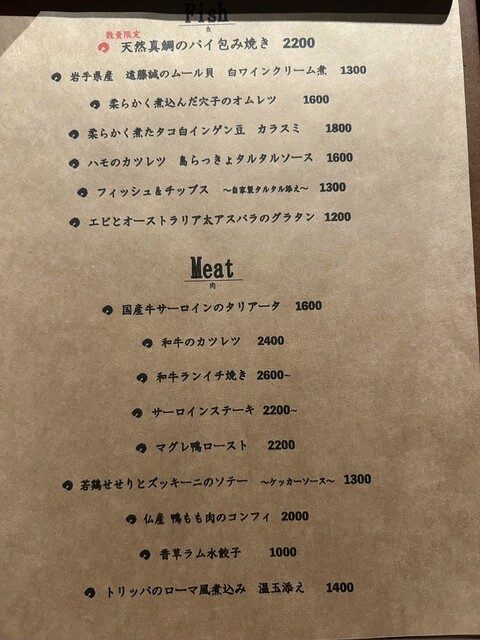 Fish
魚
数量限定
天然真鯛のパイ包み焼き 2200
岩手県産 遠藤誠のムール貝 白ワインクリーム煮 1300
柔らかく煮込んだ穴子のオムレツ 1600
柔らかく煮たタコ白インゲン豆 カラスミ 1800
ハモのカツレツ 島らっきょタルタルソース 1600
フィッシュ&チップス 〜自家製タルタル添え〜 1300
エビとオーストラリア太アスパラのグラタン 1200
Meat
肉
国産牛サーロインのタリアータ 1600
和牛のカツレツ 2400
和牛ランイチ焼き 2600~
サーロインステーキ 2200~
マグレ鴨ロースト 2200
若鶏せせりとズッキーニのソテー 〜ケッカーソース〜 1300
仏産 鴨もも肉のコンフィ 2000
香草ラム水餃子 1000
トリッパのローマ風煮込み 温玉添え 1400